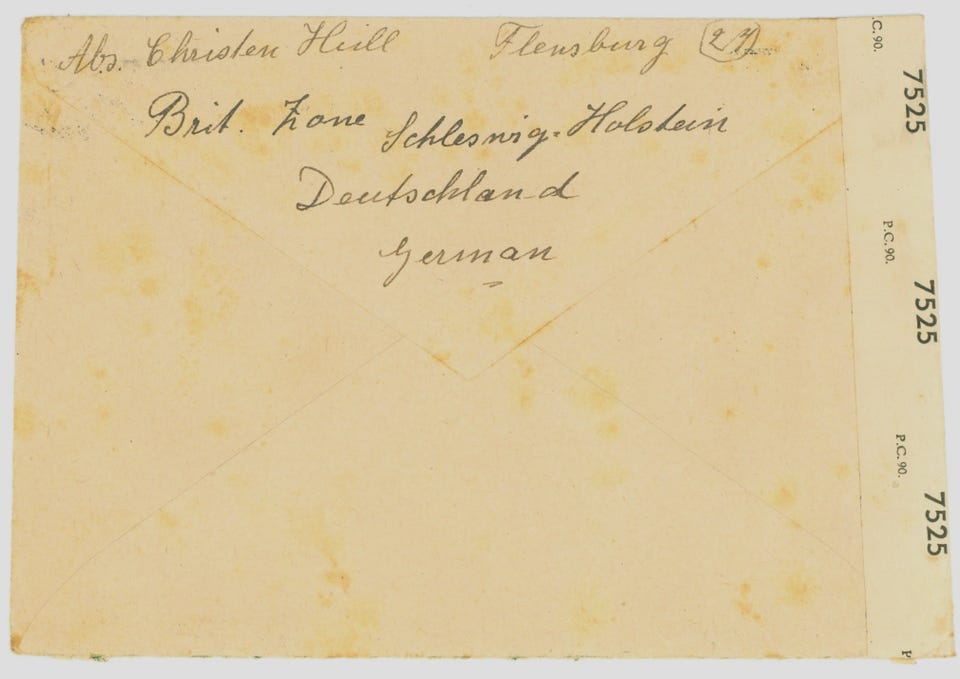 Abs. Christen Heill Flensburg (24)
Brit. Zone Schleswig-Holstein
Deutschland
German
C.90.
7525
P.C.90.
7525
P.C.90.
7525
P